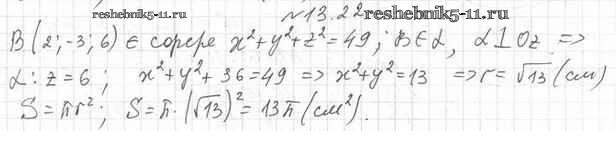 reshebnik5-11.ru
№13.22 reshebnik5-11.ru
B(2;-3;6) ∈ сфере x²+y²+z²=49; B∈α, α⊥Oz ⇒
α: z=6; x²+y²+36=49 ⇒ x²+y²=13 ⇒ r=√13 (см)
S=πr²; S=π·(√13)²=13π (см²).